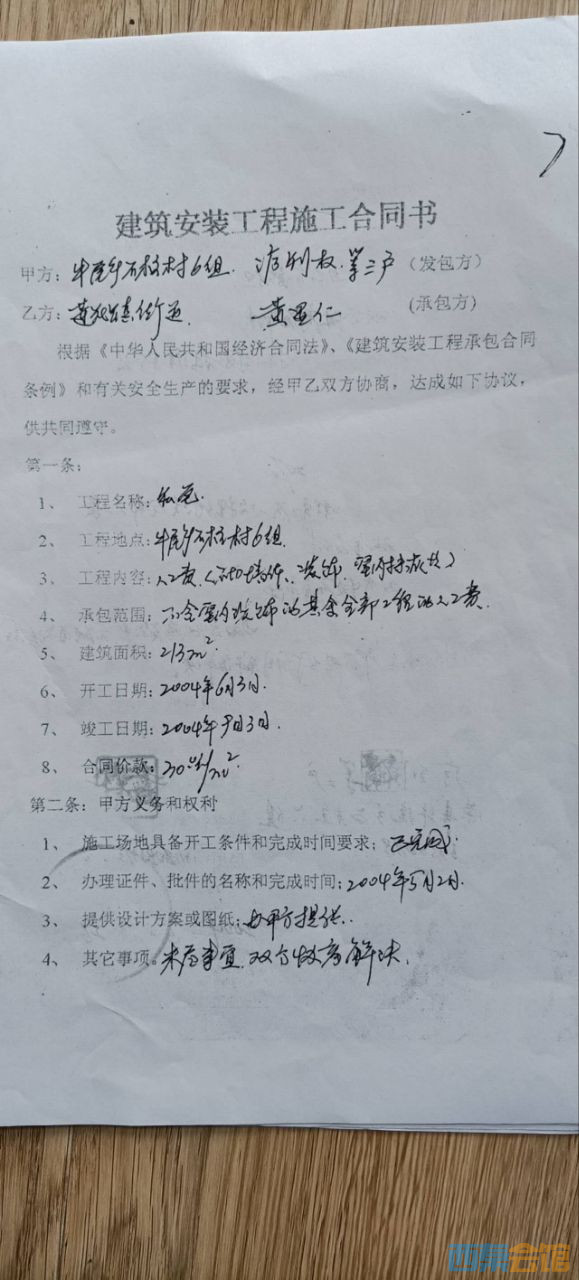 建筑安装工程施工合同书
甲方：牛尾乡石柱村6组. 权.等三户（发包方）
乙方： (承包方)
根据《中华人民共和国经济合同法》、《建筑安装工程承包合同
条例》和有关安全生产的要求，经甲乙双方协商，达成如下协议，
供共同遵守。
第一条：
1、 工程名称：私宅.
2、 工程地点：牛尾乡石柱村6组.
3、 工程内容：人工费
4、 承包范围：不含室内装饰的其余全部工程的人工费.
5、 建筑面积：213m²
6、 开工日期：2004年6月3日.
7、 竣工日期：2004年9月3日.
8、 合同价款：/m²
第二条：甲方义务和权利
1、 施工场地具备开工条件和完成时间要求；已完成.
2、 办理证件、批件的名称和完成时间：2004年5月2日.
3、 提供设计方案或图纸：由甲方提供.
4、 其它事项。未尽事宜.双方协商解决.
西祠会馆